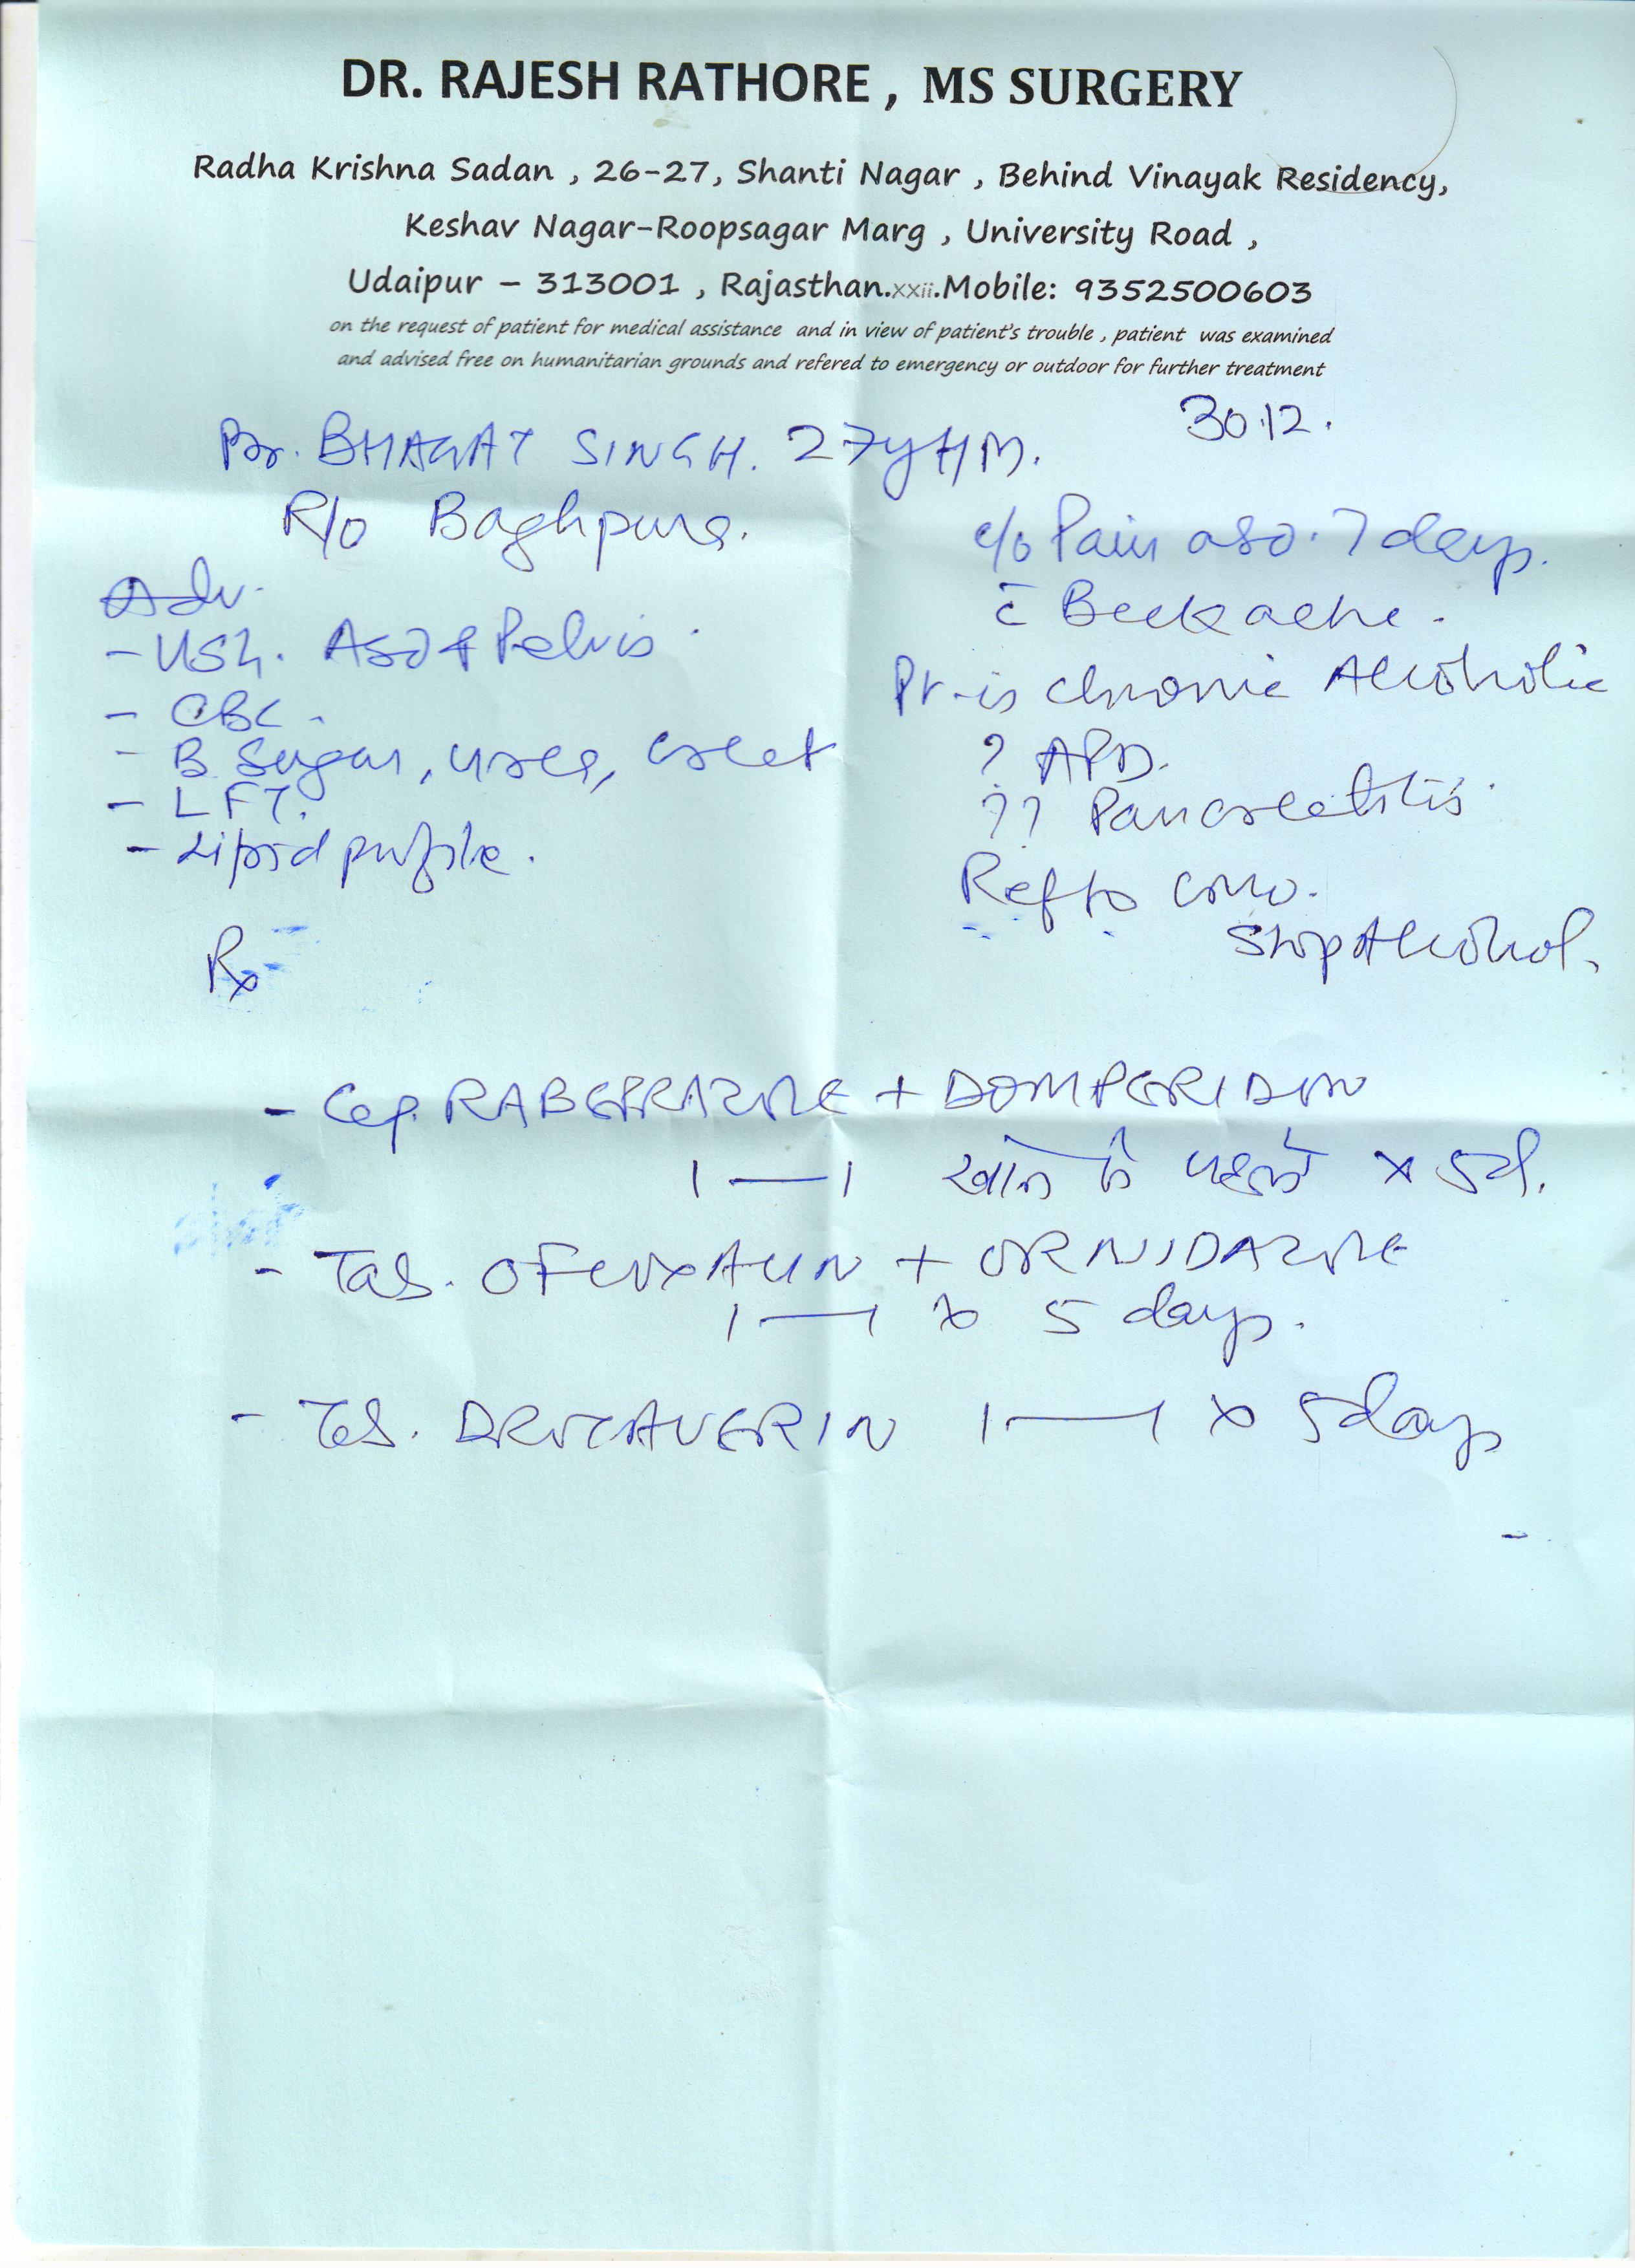 DR. RAJESH RATHORE , MS SURGERY
Radha Krishna Sadan , 26-27, Shanti Nagar , Behind Vinayak Residency,
Keshav Nagar-Roopsagar Marg , University Road ,
Udaipur – 313001 , Rajasthan.xxii.Mobile: 9352500603
on the request of patient for medical assistance and in view of patient's trouble , patient was examined
and advised free on humanitarian grounds and refered to emergency or outdoor for further treatment
30.12.
BHAGAT SINGH. 27y H M.
R/o Baghpura.
c/o Pain abd. 7 days.
c̄ Backache.
Pt. is chronic Alcoholic
? APD.
?? Pancreatitis.
Ref to
Stop Alcohol.
Adv.
- USG. Abd & Pelvis.
- CBC.
- B. Sugar, urea, creat
- LFT.
- Lipid profile.
Rx
- Cap. RABEPRAZOLE + DOMPERIDON
1 — 1 खाने से पहले x 5d.
- Tab. OFLOXACIN + ORNIDAZOLE
1 — 1 x 5 days.
- Tab. DROTAVERIN 1 — 1 x 5 days